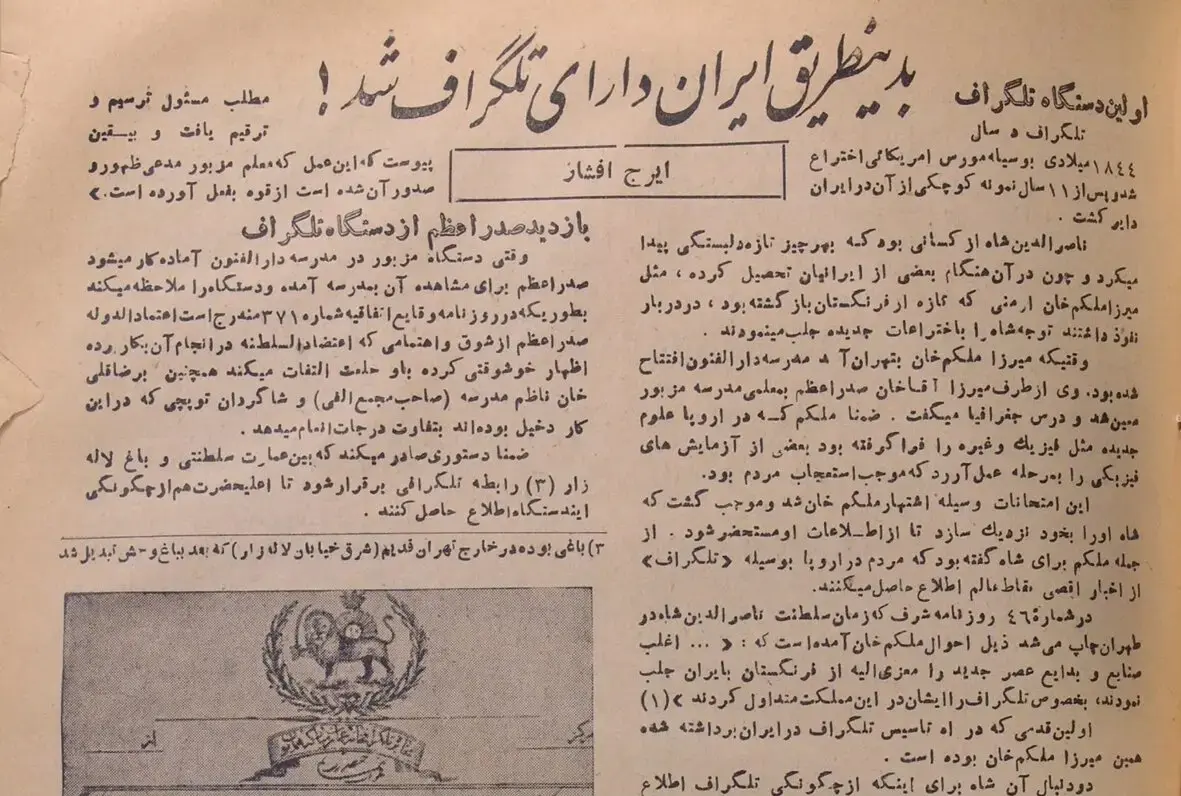 بدینطریق ایران دارای تلگراف شد!
ایرج افشار
اولین دستگاه تلگراف
تلگراف د سال
۱۸٤٤ میلادی بوسیله مورس امریکائی اختراع
شد و پس از ۱۱ سال نمونه کوچکی از آن در ایران
دایر گشت .
ناصرالدین شاه از کسانی بود که بهر چیز تازه دلبستگی پیدا
میکرد و چون در آن هنگام بعضی از ایرانیان تحصیل کرده ، مثل
میرزا ملکم خان ارمنی که تازه از فرنگستان بازگشته بود ، در دربار
نفوذ داشتند توجه شاه را باختراعات جدیده جلب مینمودند .
وقتیکه میرزا ملکم خان بتهران آمد مدرسه دارالفنون افتتاح
شده بود. وی از طرف میرزا آقاخان صدراعظم بمعلمی مدرسه مزبور
معین شد و درس جغرافیا میگفت . ضمنا ملکم کـه در اروپا علوم
جدیده مثل فیزیك وغیره را فراگرفته بود بعضی از آزمایش های
فیزیکی را بمرحله عمل آورد که موجب استعجاب مردم بود.
این امتحانات وسیله اشتهار ملکم خان شد و موجب گشت که
شاه اورا بخود نزدیك سازد تا از اطـلاعات او مستحضر شود . از
جمله ملکم برای شاه گفته بود که مردم در اروپا بوسیله «تلگراف»
از اخبار اقصی نقاط عالم اطلاع حاصل میکنند.
در شمارهٔ ٤٦ روزنامه شرف که زمان سلطنت ناصرالدین شاه در
طهران چاپ می‌شد ذیل احوال ملکم خان آمده است که : « ... اغلب
صنایع و بدایع عصر جدید را معزی الیه از فرنگستان بایران جلب
نمودند، بخصوص تلگراف را ایشان در این مملکت متداول کردند »(۱)
اولین قدمی که در راه تاسیس تلگراف در ایران برداشته شده
همین میرزا ملکم خان بوده است .
دودنبال آن شاه برای اینکه از چگونگی تلگراف اطلاع
مطلب مسئول ترسیم و
ترقیم یافت و بیـقین
پیوست که این عمل که معلم مزبور مدعی ظهور و
صدور آن شده است از قوه بفعل آورده است.»
بازدید صدراعظم از دستگاه تلگراف
وقتی دستگاه مزبور در مدرسه دارالفنون آماده کار میشود
صدراعظم برای مشاهده آن بمدرسه آمده و دستگاه را ملاحظه میکند
بطوریکه در روزنامه وقایع اتفاقیه شماره ۳۷۱ مندرج است اعتمادالدوله
صدراعظم از شوق و اهتمامی که اعتضادالسلطنه در انجام آن بکار برده
اظهار خوشوقتی کرده باو خلعت التفات میکند همچنین برضاقلی
خان ناظم مدرسه (صاحب مجمع الفی) و شاگردان توپچی که در این
کار دخیل بوده‌اند بتفاوت درجات انعام میدهد .
ضمنا دستوری صادر میکند که بین عمارت سلطنتی و باغ لاله
زار (۳) رابطه تلگرافی برقرار شود تا اعلیحضرت هم از چگونگی
ایندستگاه اطلاع حاصل کنند .
۳) باغی بوده در خارج تهران قدیم (شرق خیابان لاله زار) که بعد بباغ وحش تبدیل شد
مرکز
از